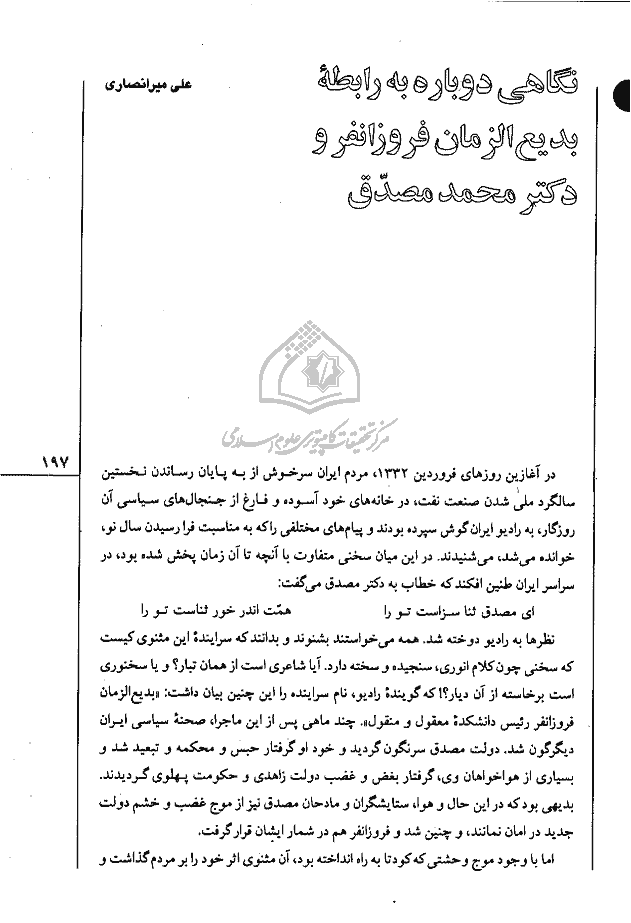 نگاهی دوباره به رابطهٔ
بدیع‌الزمان فروزانفر و
دکتر محمد مصدّق
علی میرانصاری
مرکز تحقیقات کامپیوتری علوم اسلامی
۱۹۷
در آغازین روزهای فروردین ۱۳۳۲، مردم ایران سرخوش از به پایان رساندن نخستین
سالگرد ملی شدن صنعت نفت، در خانه‌های خود آسوده و فارغ از جنجال‌های سیاسی آن
روزگار، به رادیو ایران گوش سپرده بودند و پیام‌های مختلفی را که به مناسبت فرا رسیدن سال نو،
خوانده می‌شد، می‌شنیدند. در این میان سخنی متفاوت با آنچه تا آن زمان پخش شده بود، در
سراسر ایران طنین افکند که خطاب به دکتر مصدق می‌گفت:
ای مصدق ثنا سزاست تو را همّت اندر خور ثناست تو را
نظرها به رادیو دوخته شد. همه می‌خواستند بشنوند و بدانند که سرایندهٔ این مثنوی کیست
که سخنی چون کلام انوری، سنجیده و سخته دارد. آیا شاعری است از همان تبار؟ و یا سخنوری
است برخاسته از آن دیار؟! که گویندهٔ رادیو، نام سراینده را این چنین بیان داشت: «بدیع‌الزمان
فروزانفر رئیس دانشکدهٔ معقول و منقول». چند ماهی پس از این ماجرا، صحنهٔ سیاسی ایران
دیگرگون شد. دولت مصدق سرنگون گردید و خود او گرفتار حبس و محکمه و تبعید شد و
بسیاری از هواخواهان وی، گرفتار بغض و غضب دولت زاهدی و حکومت پهلوی گردیدند.
بدیهی بود که در این حال و هوا، ستایشگران و مادحان مصدق نیز از موج غضب و خشم دولت
جدید در امان نمانند، و چنین شد و فروزانفر هم در شمار ایشان قرار گرفت.
اما با وجود موج وحشتی که کودتا به راه انداخته بود، آن مثنوی اثر خود را بر مردم گذاشت و